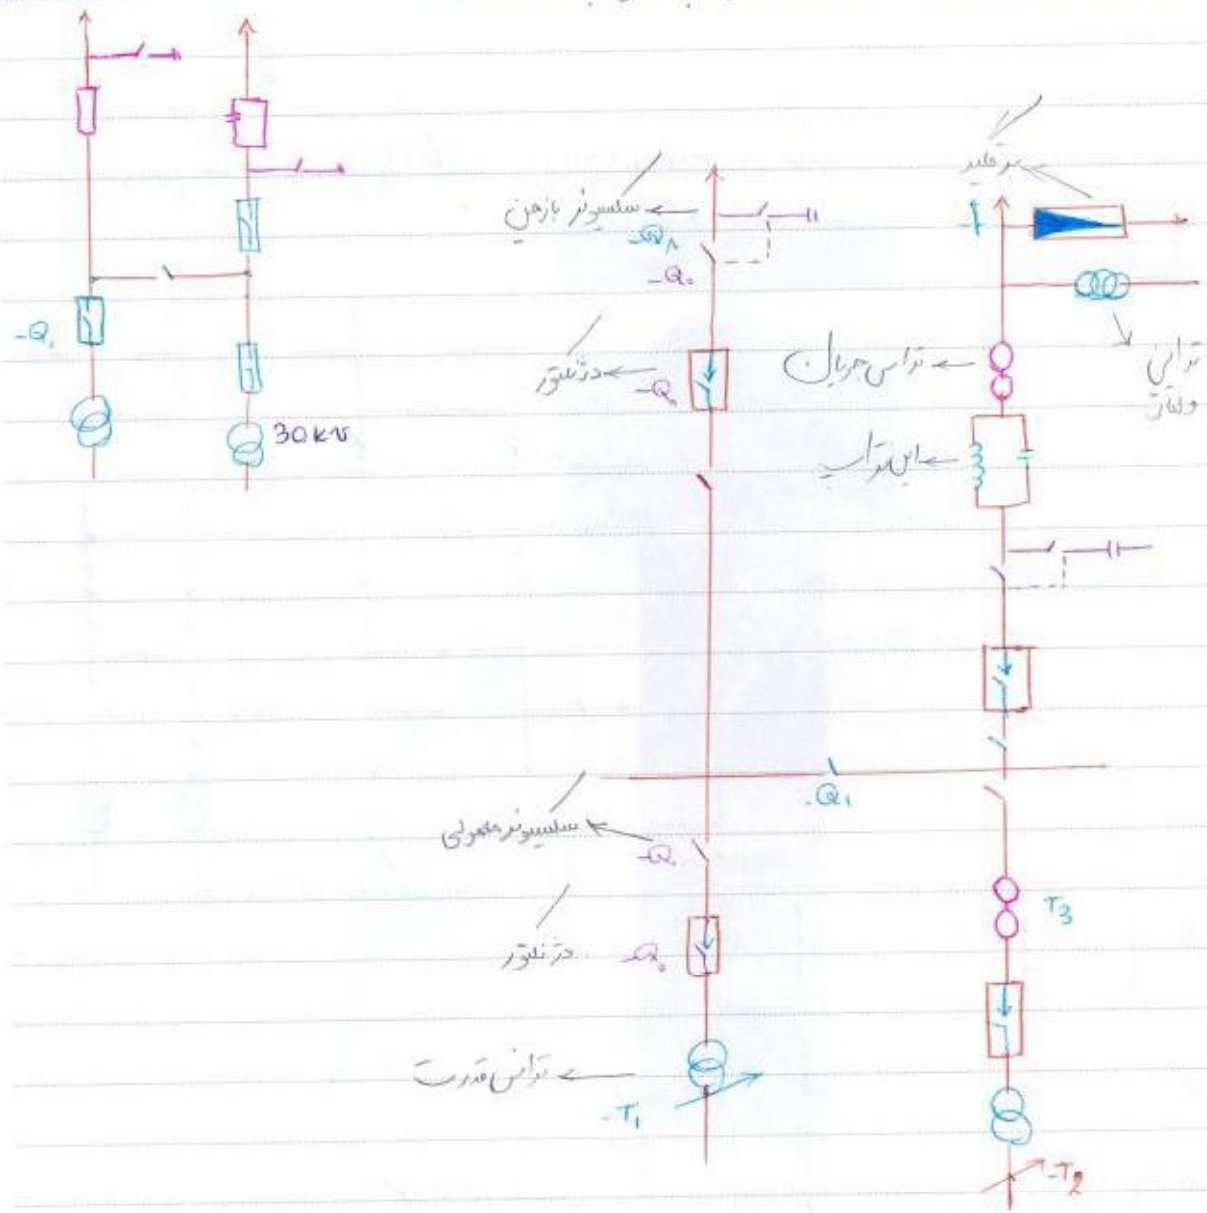 30kv
-Q.
سکسیونر بازمین
-Q8
-Q.
دژنکتور
-Q.
برقگیر
ترانس جریان
ترانس
ولتاژ
لاین تراپ
-Q1
سکسیونر معمولی
-Q.
دژنکتور
-Q.
T3
ترانس قدرت
-T1
-T2